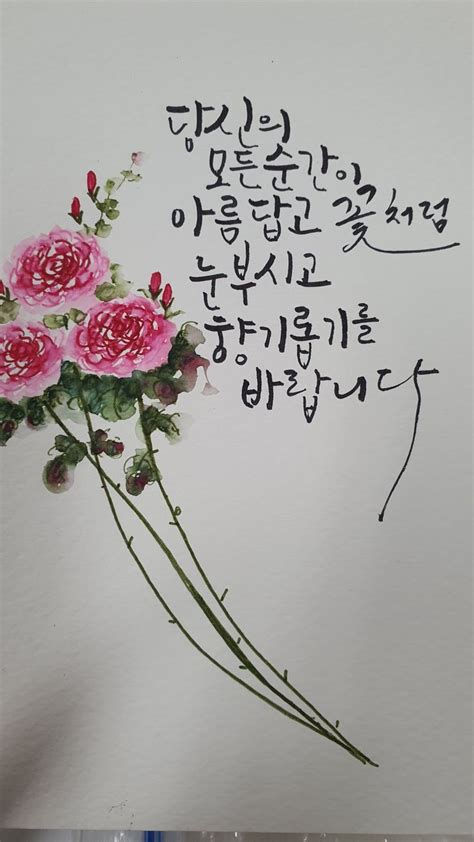 당신의
모든순간이
아름답고 꽃처럼
눈부시고
향기롭기를
바랍니다